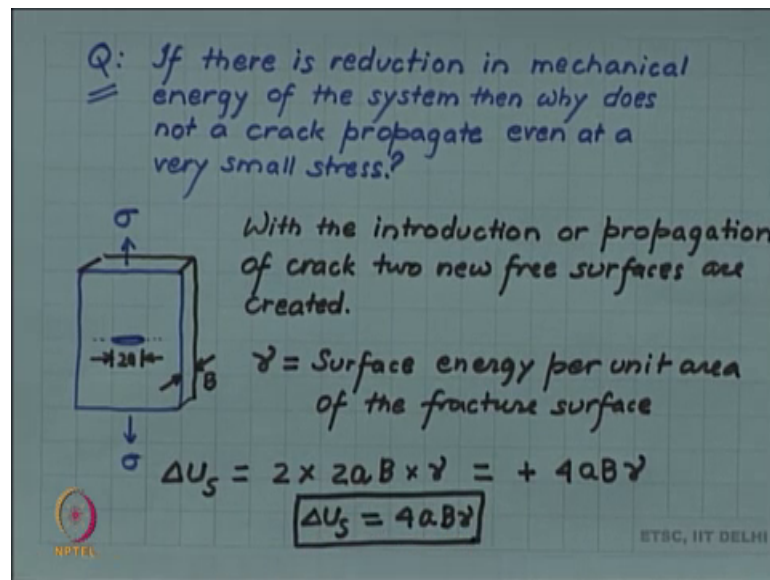 Q: If there is reduction in mechanical
energy of the system then why does
not a crack propagate even at a
very small stress?
σ
With the introduction or propagation
of crack two new free surfaces are
created.
2a
B
γ = Surface energy per unit area
of the fracture surface
σ
ΔU_S = 2 × 2aB × γ = + 4aBγ
ΔU_S = 4aBγ
NPTEL
ETSC, IIT DELHI